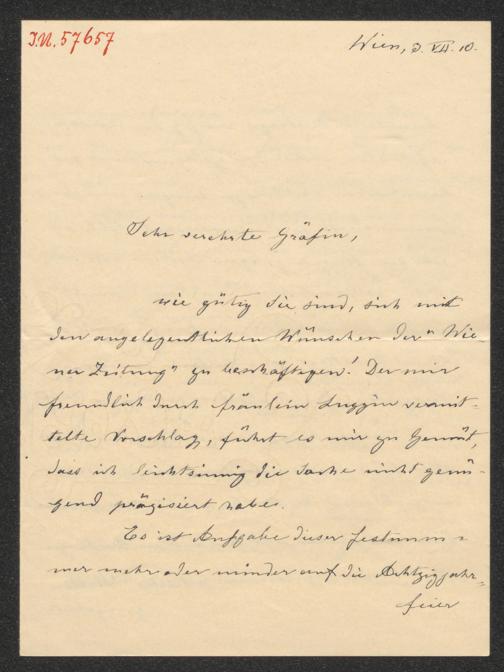 I.N. 57657
Wien, 3. VII. 10.
Sehr verehrte Gräfin,
wie gütig Sie sind, sich mit
den angelegentlichen Wünschen der "Wie
ner Zeitung" zu beschäftigen! Der mir
freundlich durch Fräulein vermit-
telte Vorschlag, führt es mir zu Gemüt,
dass ich leichtsinnig die Sache nicht genü-
gend präzisiert habe.
Es ist Aufgabe dieser Festnum-
mer mehr oder minder auf die Achtzigjahr-
feier